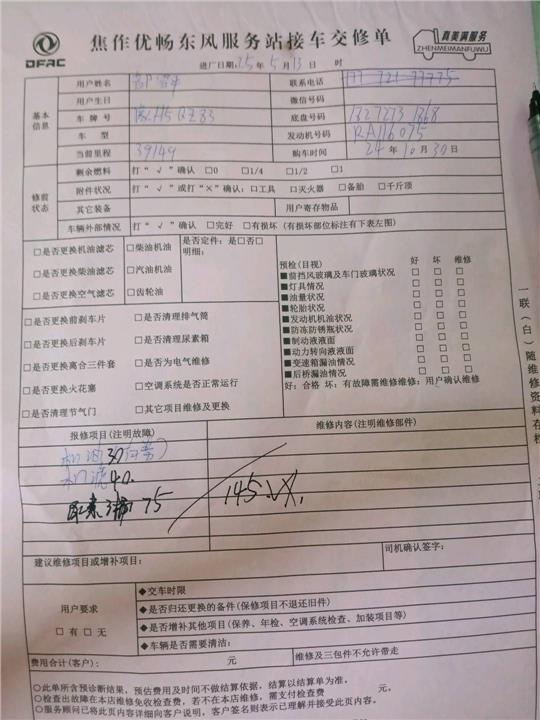 DFAC
焦作优畅东风服务站接车交修单
真美满服务
ZHENMEIMANFUWU
进厂日期:25年5月13日 时
基本信息
用户姓名
联系电话
用户生日
微信号码
车牌号
底盘号码
车型
发动机号码 RA116075
当前里程 39149
购车时间 24年10月30日
修前状态
剩余燃料 打“√”确认 □0 □1/4 □1/2 □1
附件状况 打“√”或打“×”确认:□工具 □灭火器 □备胎 □千斤顶
其它装备
用户寄存物品
车辆外部情况 打“√”确认 □完好 □有损坏(有损坏部位标注有下表左图)
□是否更换机油滤芯 □柴油机油 是否定件:是□否□
明细:
□是否更换柴油滤芯 □汽油机油
□是否更换空气滤芯 □齿轮油
预检(目视) 好 坏 维修
■前挡风玻璃及车门玻璃状况 □ □ □
■灯具情况 □ □ □
■油量状况 □ □ □
■轮胎状况 □ □ □
■发动机机油状况 □ □ □
■防冻防锈瓶状况 □ □ □
■制动液液面 □ □ □
■动力转向液液面 □ □ □
■变速箱漏油情况 □ □ □
■后桥漏油情况 □ □ □
好:合格 坏:有故障需维修维修:用户确认维修
□是否更换前刹车片 □是否清理排气筒
□是否更换后刹车片 □是否清理尿素箱
□是否更换离合三件套 □是否为电气维修
□是否更换火花塞 □空调系统是否正常运行
□是否清理节气门 □其它项目维修及更换
一联(白)随维修资料存档
报修项目(注明故障)
维修内容(注明维修部件)
机油30
机滤40.
尿素 75
145.
建议维修项目或增补项目:
司机确认签字:
用户要求
□有 □无
◆交车时限
◆是否归还更换的备件(保修项目不退还旧件)
◆是否增补其他项目(保养、年检、空调系统检查、加装项目等)
◆车辆是否需要清洁:
费用合计(客户): 元
维修及三包件不允许带走
○此单所含预诊断结果,预估费用及时间不做结算依据,结算以结算单为准。
○检查出故障在本店维修免收检查费,若不在本店维修,需支付检查费 元,
○服务顾问已将此页内容详细向客户说明,客户签名则表示已理解并接受此页内容。